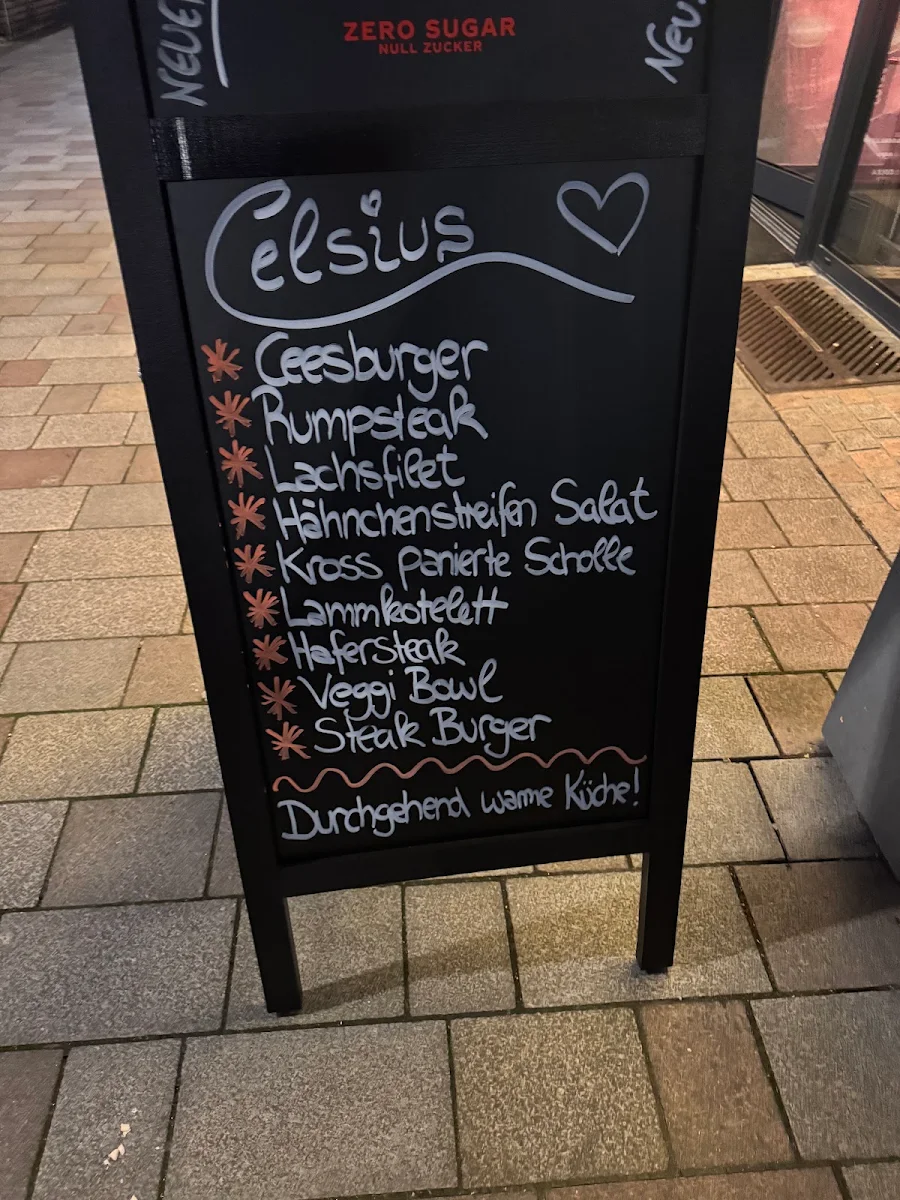 ZERO SUGAR
NULL ZUCKER
Neu!
Celsius
Ceesburger
Rumpsteak
Lachsfilet
Hähnchenstreifen Salat
Kross panierte Scholle
Lammkotelett
Hafersteak
Veggi Bowl
Steak Burger
Durchgehend warme Küche!